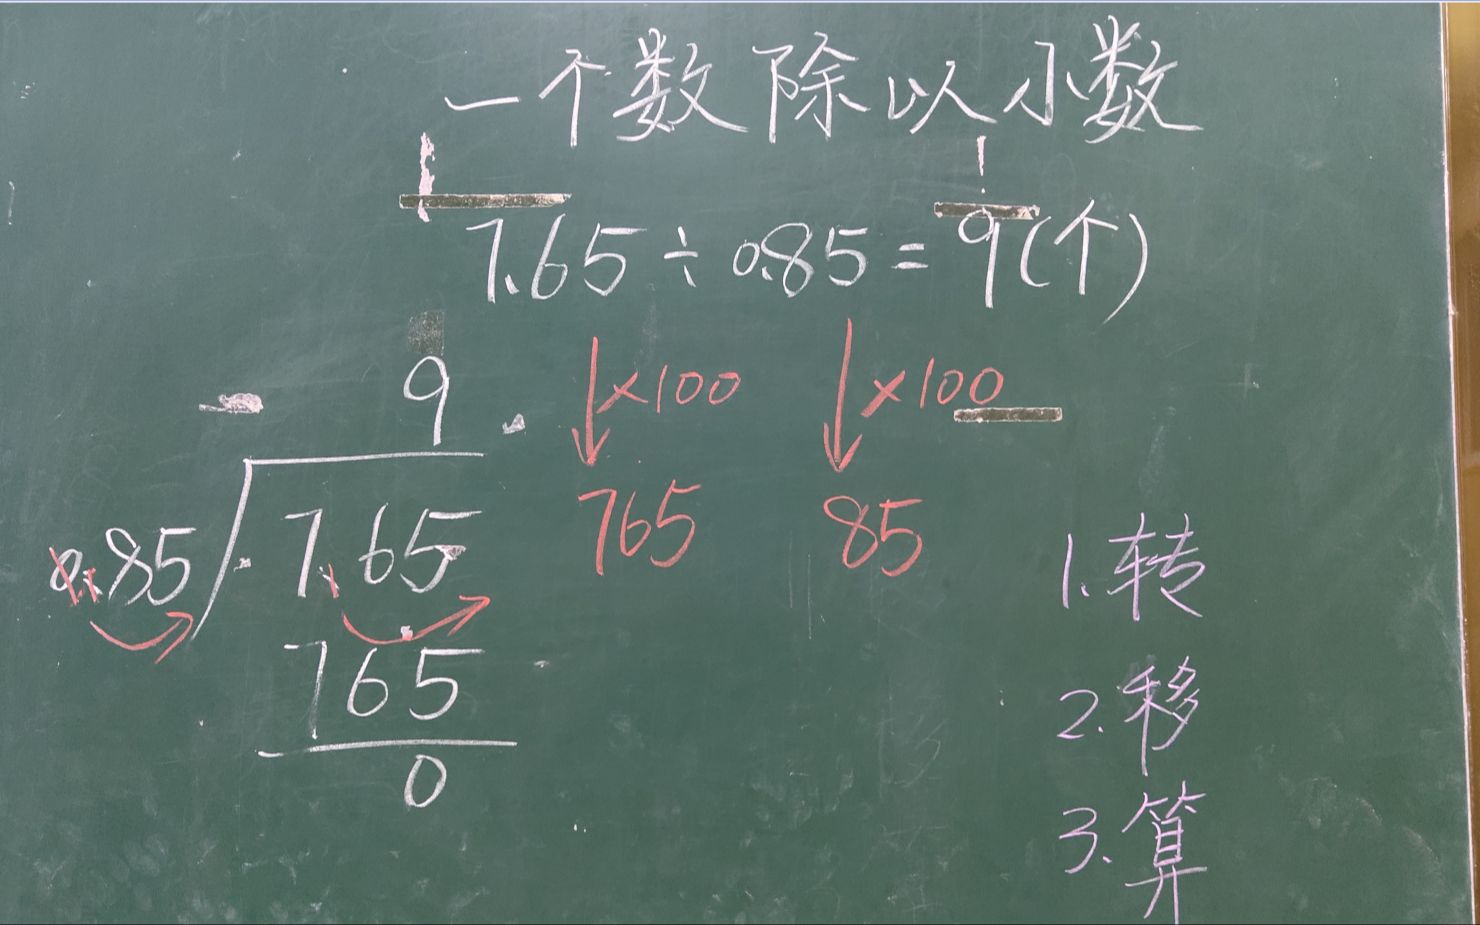 一个数除以小数
7.65÷0.85=9(个)
×100 ×100
765 85
9
0.85 7.65
765
0
1.转
2.移
3.算